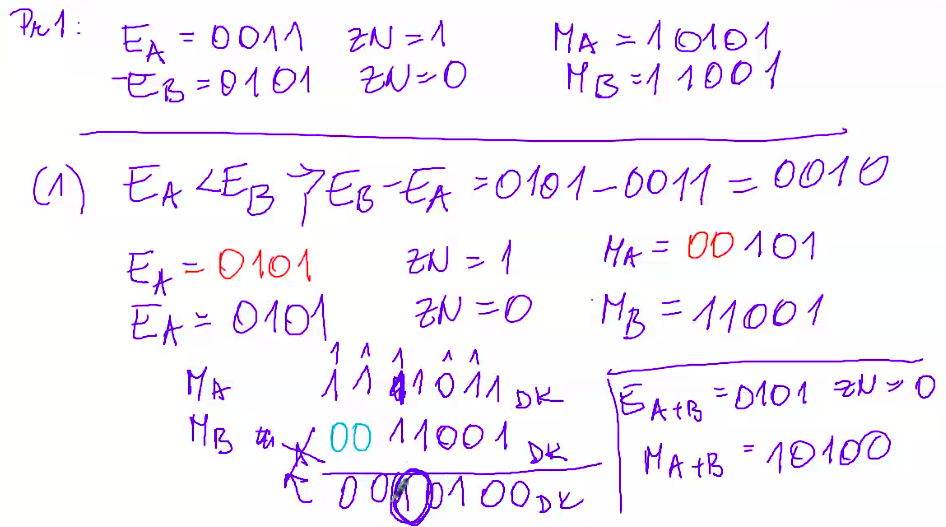 Pr1:
E_A = 0011 ZN = 1 M_A = 10101
E_B = 0101 ZN = 0 M_B = 11001
(1) E_A < E_B → E_B - E_A = 0101 - 0011 = 0010
E_A = 0101 ZN = 1 M_A = 00101
E_A = 0101 ZN = 0 M_B = 11001
1 1 1 1 1
M_A 1111011 DK
M_B 0011001 DK
0010100 DK
E_A+B = 0101 ZN = 0
M_A+B = 10100